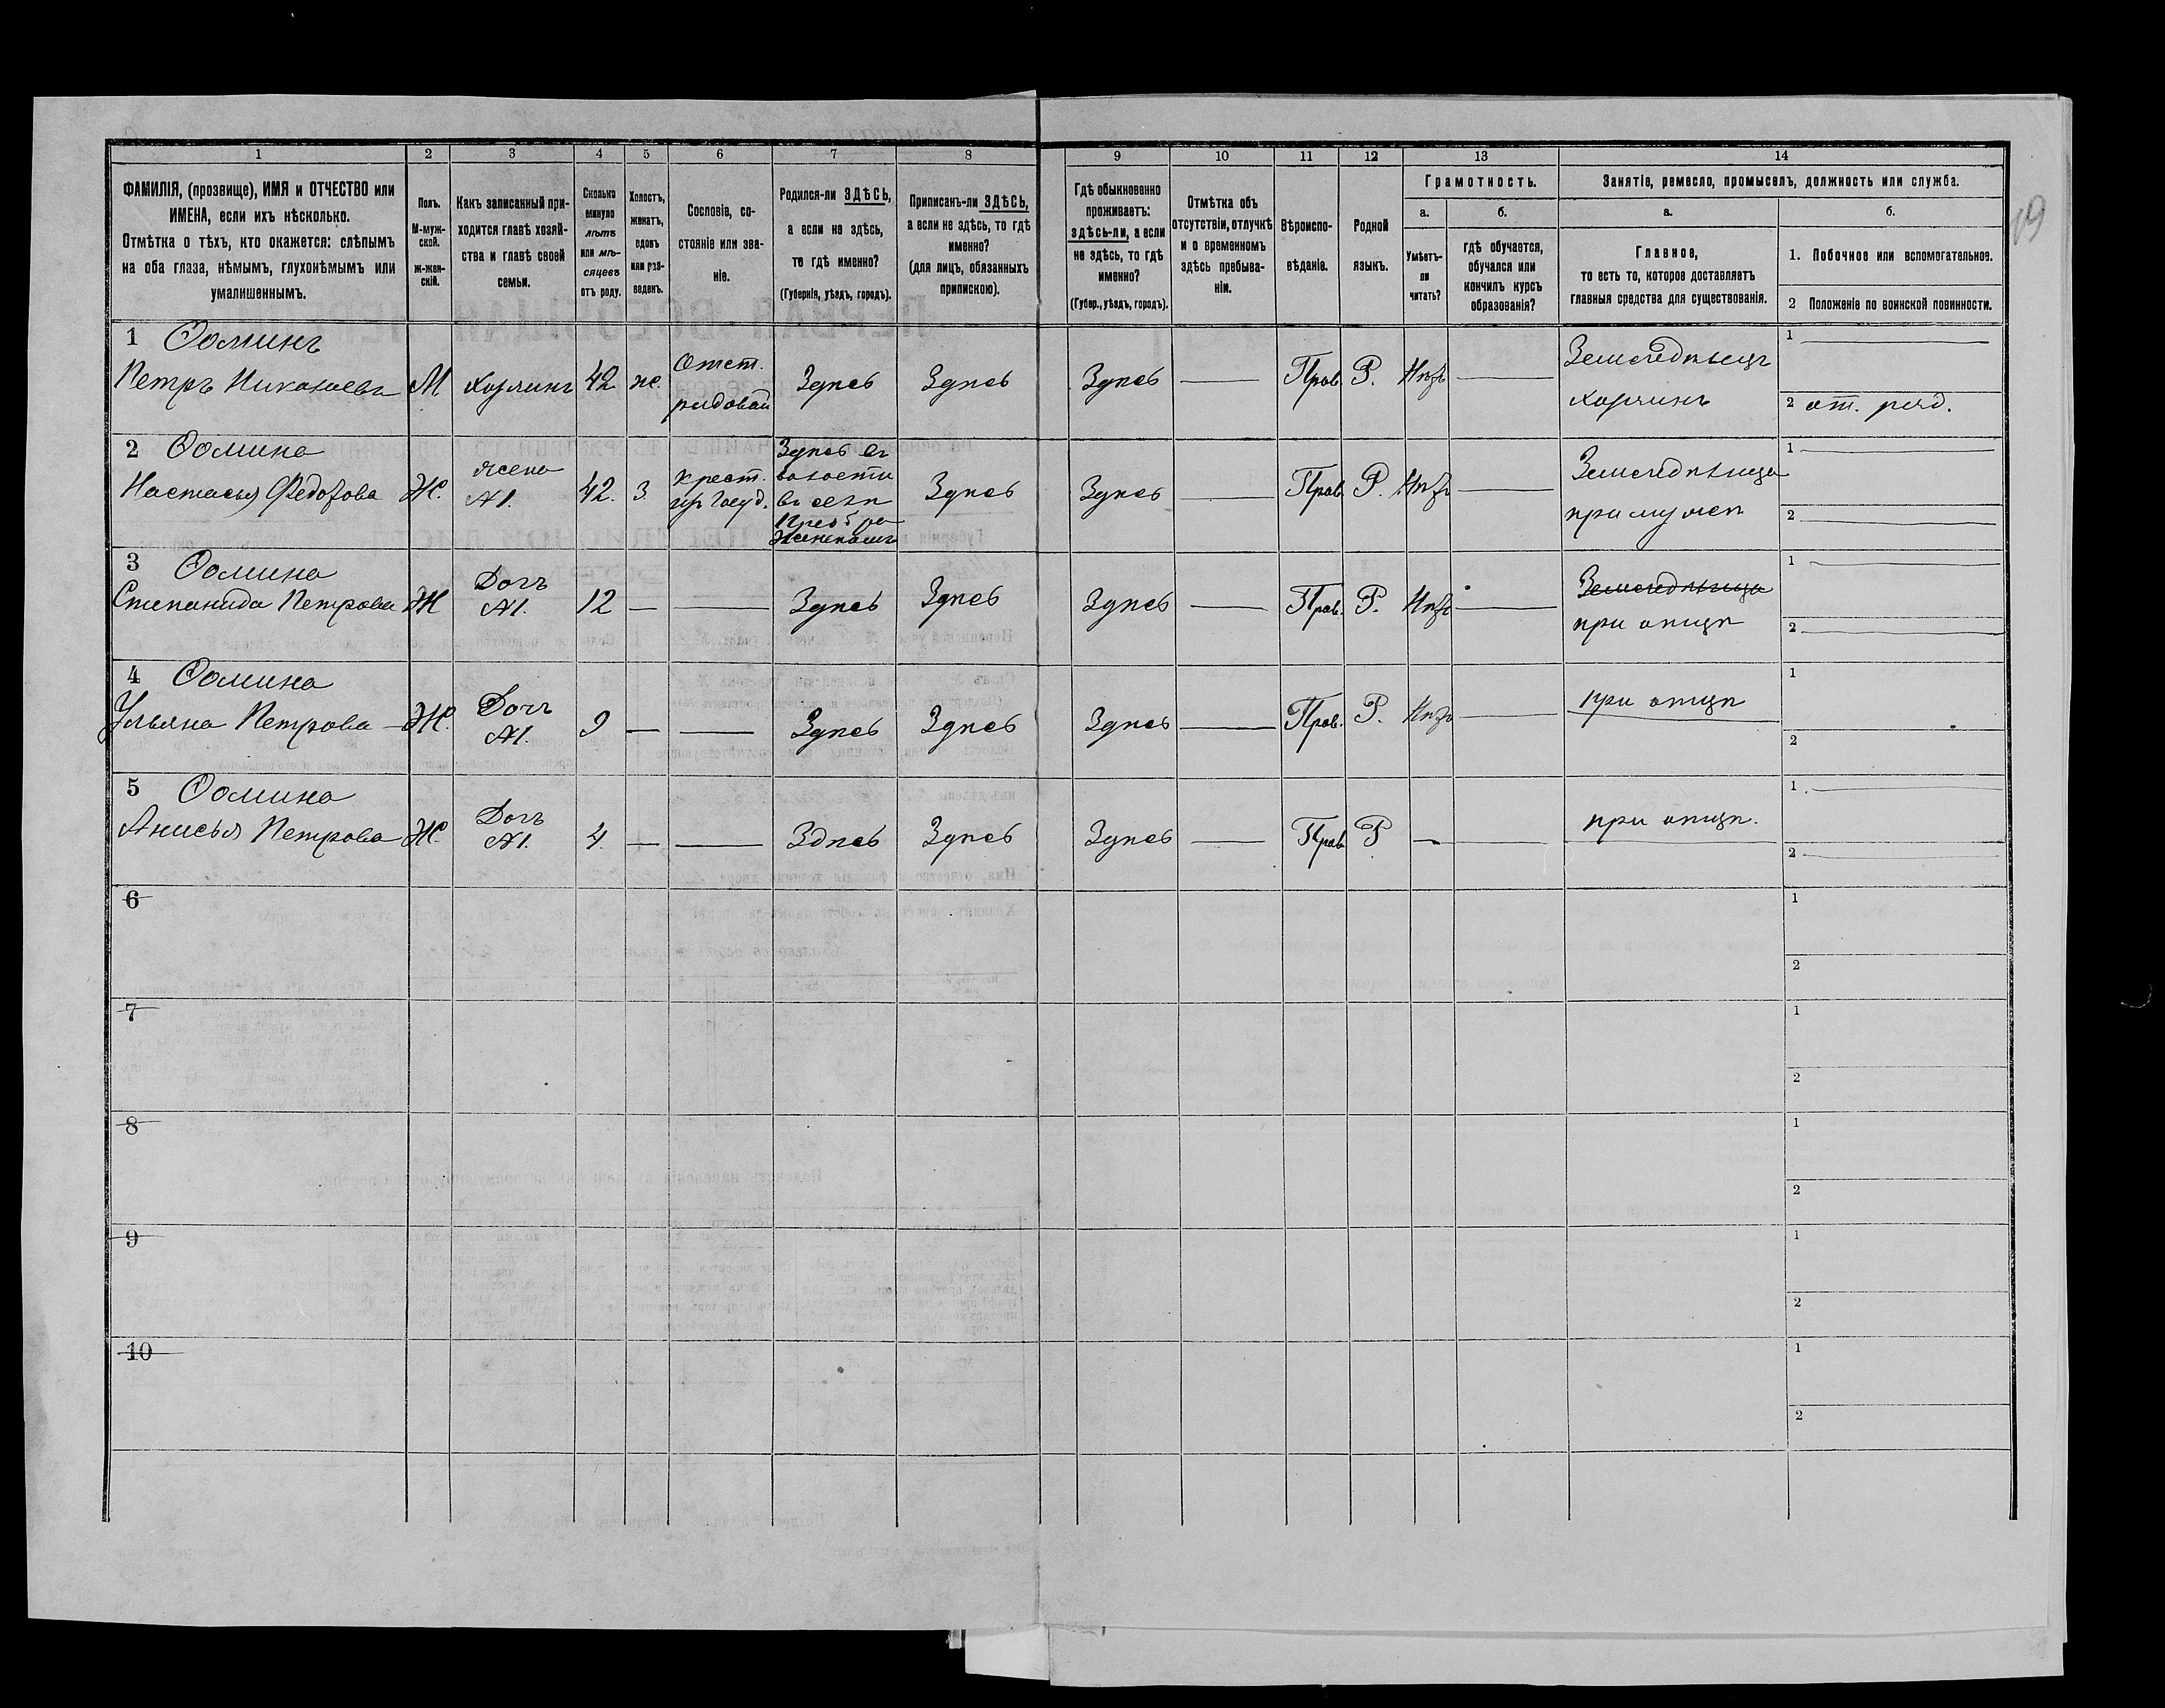 1 2 3 4 5 6 7 8 9 10 11 12 13 14
ФАМИЛІЯ, (прозвище), ИМЯ и ОТЧЕСТВО или
ИМЕНА, если ихъ нѣсколько.
Отмѣтка о тѣхъ, кто окажется: слѣпымъ
на оба глаза, нѣмымъ, глухонѣмымъ или
умалишеннымъ.
Полъ.
М-муж-
ской.
ж-жен-
скій.
Какъ записанный при-
ходится главѣ хозяй-
ства и главѣ своей
семьи.
Сколько
минуло
лѣтъ
или мѣ-
сяцевъ
отъ роду.
Холостъ,
женатъ,
вдовъ
или раз-
веденъ.
Сословіе, со-
стояніе или зва-
ніе.
Родился-ли ЗДѢСЬ,
а если не здѣсь,
то гдѣ именно?
(Губернія, уѣздъ, городъ).
Приписанъ-ли ЗДѢСЬ,
а если не здѣсь, то гдѣ
именно?
(для лицъ, обязанныхъ
припискою).
Гдѣ обыкновенно
проживаетъ:
здѣсь-ли, а если
не здѣсь, то гдѣ
именно?
(Губер., уѣздъ, городъ).
Отмѣтка объ
отсутствіи, отлучкѣ
и о временномъ
здѣсь пребыва-
ніи.
Вѣроиспо-
вѣданіе.
Родной
языкъ.
Грамотность.
а.
Умѣетъ-
ли
читать?
б.
гдѣ обучается,
обучался или
кончилъ курсъ
образованія?
Занятіе, ремесло, промыселъ, должность или служба.
а.
Главное,
то есть то, которое доставляетъ
главныя средства для существованія.
б.
1. Побочное или вспомогательное.
2 Положеніе по воинской повинности.
19
1 Фоминъ
Петръ Николаевъ М Хозяинъ 42 ж. Отст.
рядовой Здѣсь Здѣсь Здѣсь Прав. Р. Нѣтъ Земледѣлецъ
хозяинъ
1
2 от. ряд.
2 Фомина
Настасья Федорова Ж. жена
№1. 42. З Крест.
Здѣсь въ
волости
въ селѣ
Преобра
женскомъ
Здѣсь Здѣсь Прав. Р. Нѣтъ Земледѣлица
при мужѣ
1
2
3 Фомина
Степанида Петрова Ж Дочь
№1. 12 Здѣсь Здѣсь Здѣсь Прав. Р. Нѣтъ Земледѣлица
при отцѣ
1
2
4 Фомина
Ульяна Петрова Ж. Дочь
№1. 9 Здѣсь Здѣсь Здѣсь Прав. Р. Нѣтъ при отцѣ
1
2
5 Фомина
Анисья Петрова Ж. Дочь
№1. 4. Здѣсь Здѣсь Здѣсь Прав. Р при отцѣ.
1
2
6
1
2
7
1
2
8
1
2
9
1
2
10
1
2